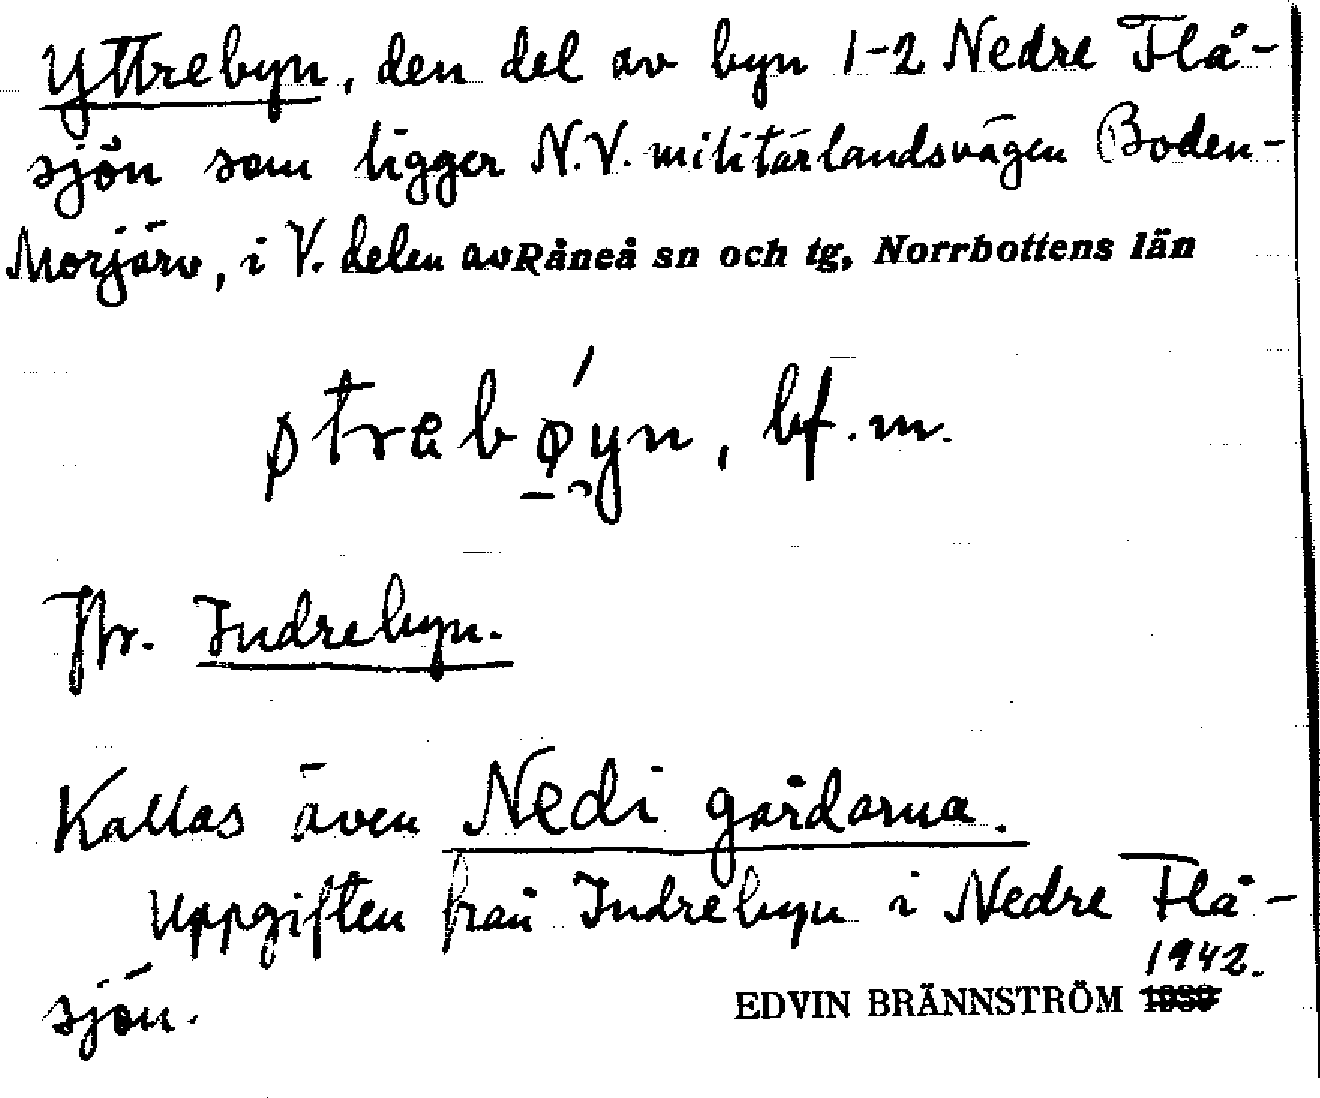 Yttrebyn, den del av byn 1-2 Nedre Flå-
sjön som ligger N.V. militärlandsvägen Boden-
Morjärv, i V. delen av Råneå sn och tg, Norrbottens län
øtrəbǿyn, bf. m.
Jfr. Indrebyn.
Kallas även Nedi gårdarna.
Uppgiften från Indrebyn i Nedre Flå-
sjön.
1942.
EDVIN BRÄNNSTRÖM